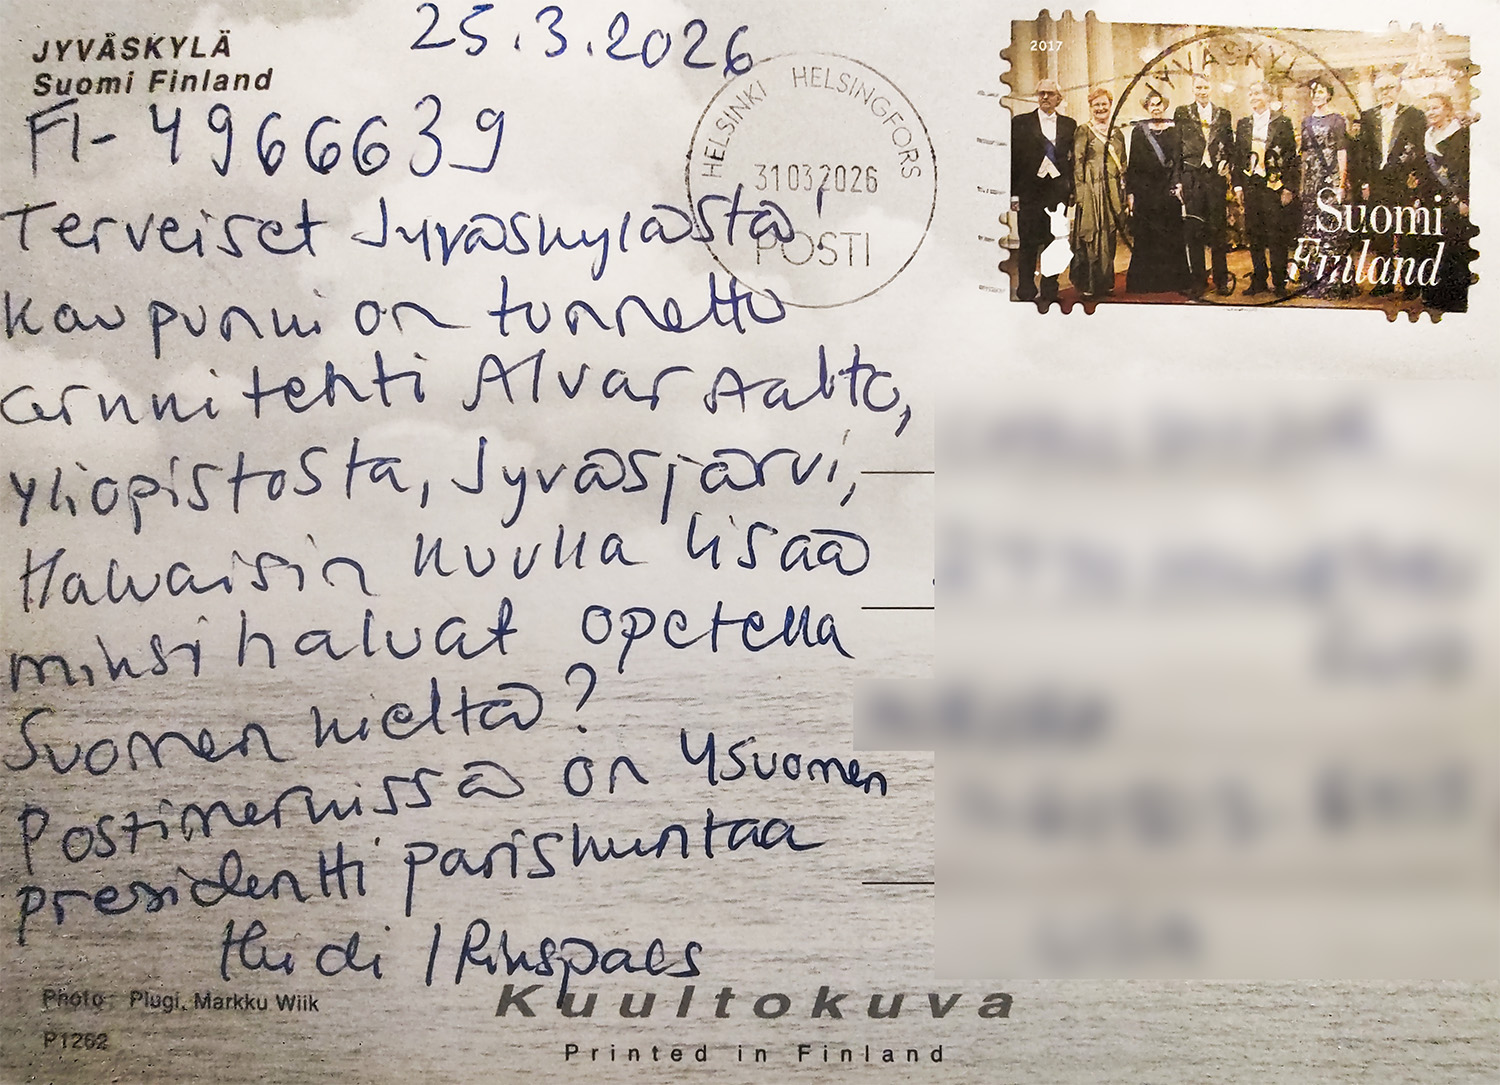 JYVÄSKYLÄ
Suomi Finland
25.3.2026
FI-4966639
Terveiset Jyväskylästä!
Kaupunki on tunnettu
arkkitehti Alvar Aalto,
yliopistosta, Jyväsjärvi,
Haluaisin kuulla lisää
miksi haluat opetella
Suomen kieltä?
Postimerkissä on 4 Suomen
presidentti pariskuntaa
Heidi /
HELSINKI HELSINGFORS
31032026
POSTI
2017
JYVÄSKYL
Suomi
Finland
Photo: Plugi, Markku Wiik
P1262
Kuultokuva
Printed in Finland